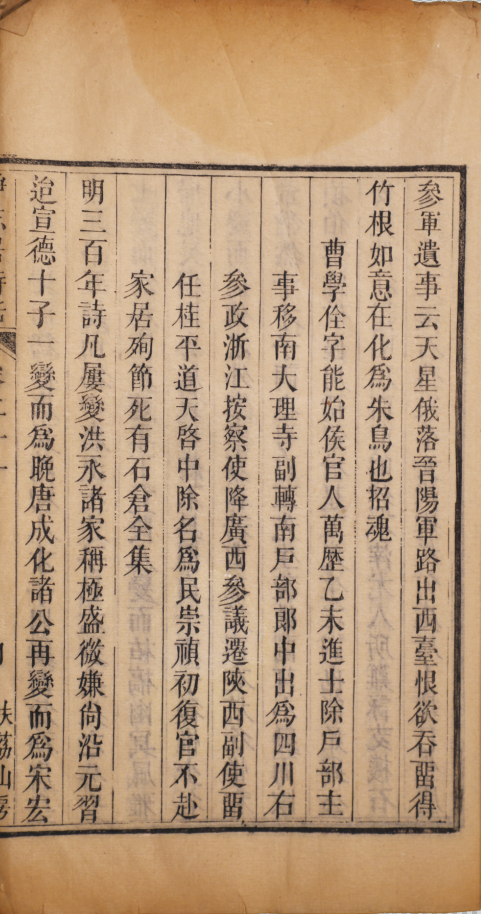 參軍遺事云天星俄落晉陽軍路出西臺恨欲吞畱得
竹根如意在化爲朱鳥也招魂
曹學佺字能始侯官人萬歷乙未進士除戶部主
事移南大理寺副轉南戶部郎中出爲四川右
參政浙江按察使降廣西參議遷陜西副使畱
任桂平道天啓中除名爲民崇禎初復官不赴
家居殉節死有石倉全集
明三百年詩凡屢變洪永諸家稱極盛微嫌尙沿元習
迨宣德十子一變而爲晚唐成化諸公再變而爲宋宏